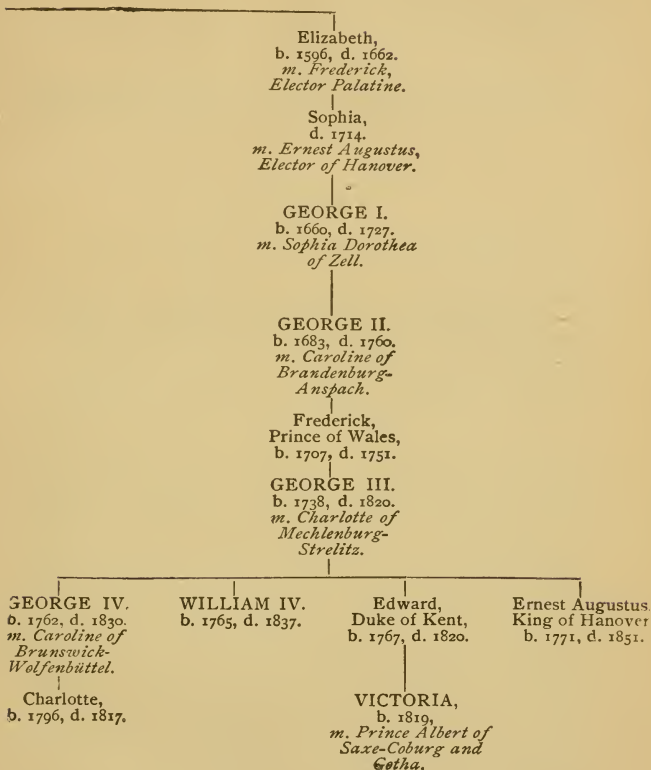 Elizabeth,
b. 1596, d. 1662.
m. Frederick,
Elector Palatine.
Sophia,
d. 1714.
m. Ernest Augustus,
Elector of Hanover.
GEORGE I.
b. 1660, d. 1727.
m. Sophia Dorothea
of Zell.
GEORGE II.
b. 1683, d. 1760.
m. Caroline of
Brandenburg-
Anspach.
Frederick,
Prince of Wales,
b. 1707, d. 1751.
GEORGE III.
b. 1738, d. 1820.
m. Charlotte of
Mechlenburg-
Strelitz.
GEORGE IV.
b. 1762, d. 1830.
m. Caroline of
Brunswick-
Wolfenbüttel.
Charlotte,
b. 1796, d. 1817.
WILLIAM IV.
b. 1765, d. 1837.
Edward,
Duke of Kent,
b. 1767, d. 1820.
VICTORIA,
b. 1819,
m. Prince Albert of
Saxe-Coburg and
Gotha.
Ernest Augustus
King of Hanover
b. 1771, d. 1851.